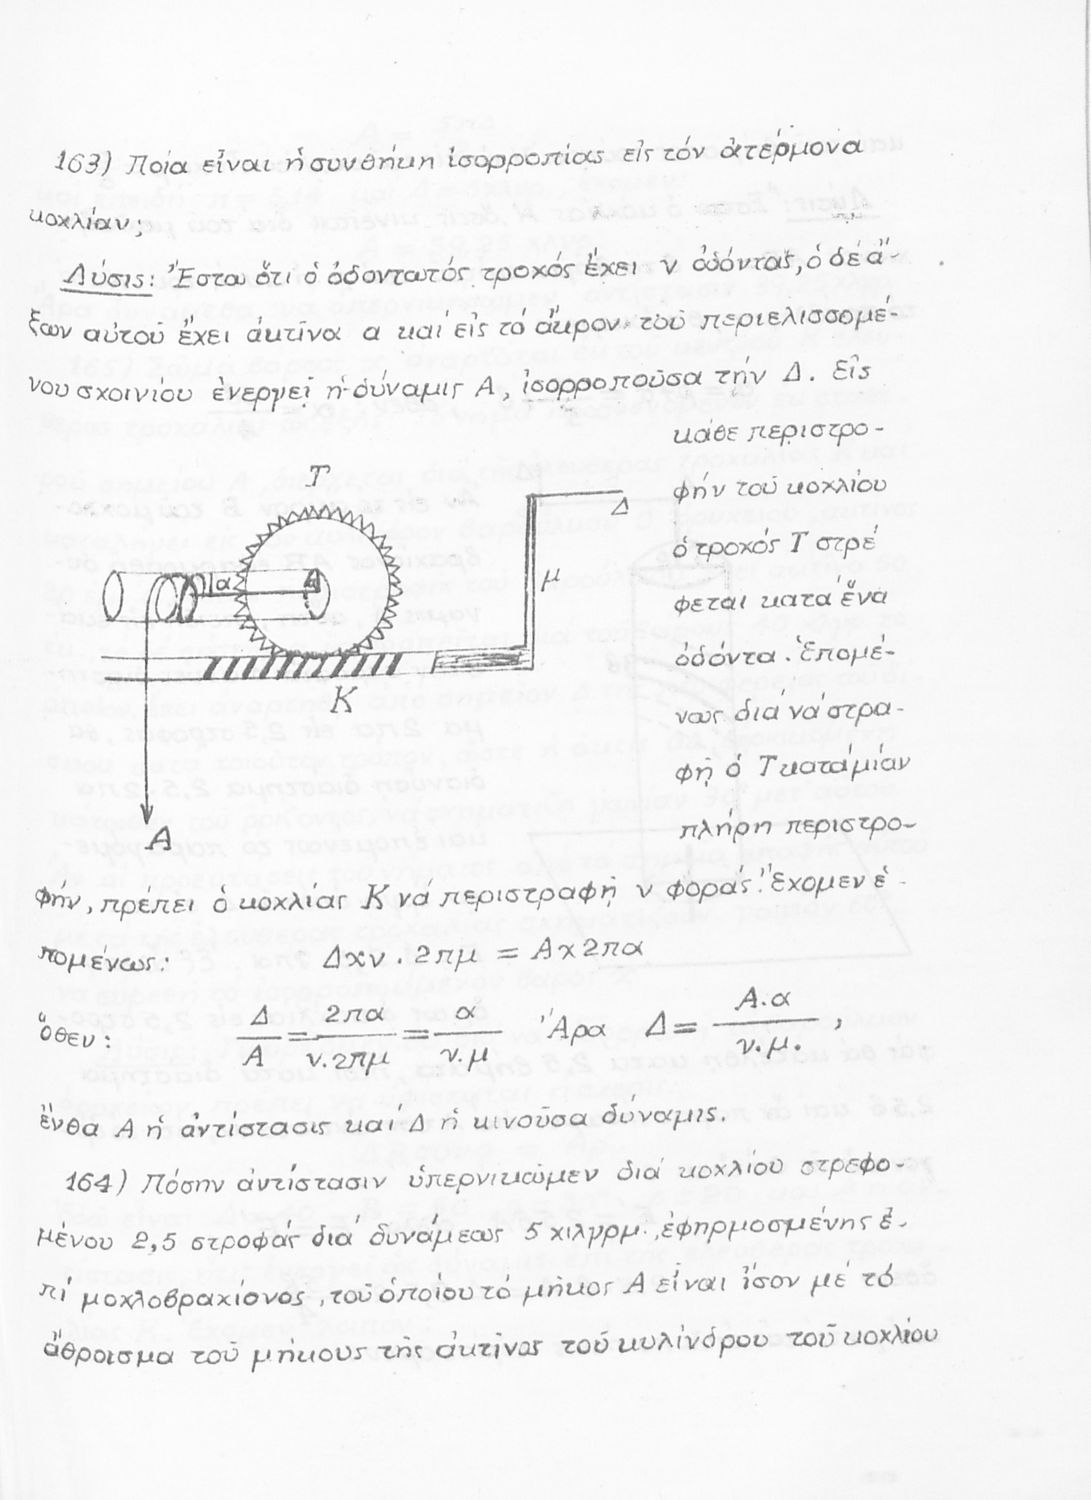 163) Ποία εἶναι ἡ συνθήκη ἰσορροπίας εἰς τόν ἀτέρμονα
κοχλίαν;
Λύσις: Ἔστω ὅτι ὁ ὀδοντωτός τροχός ἔχει ν ὀδόντας, ὁ δέ ἄ-
ξων αὐτοῦ ἔχει ἀκτῖνα α καί εἰς τό ἄκρον τοῦ περιελισσομέ-
νου σχοινίου ἐνεργεῖ ἡ δύναμις Α, ἰσορροποῦσα τήν Δ. Εἰς
κάθε περιστρο-
φήν τοῦ κοχλίου
ὁ τροχός Τ στρέ
φεται κατά ἕνα
ὀδόντα. Ἑπομέ-
νως διά νά στρα-
φῇ ὁ Τ κατά μίαν
πλήρη περιστρο-
Τ
Δ
α
μ
Κ
Α
φήν, πρέπει ὁ κοχλίας Κ νά περιστραφῇ ν φοράς. Ἔχομεν ἑ-
πομένως: Δ x ν . 2πμ = Α x 2πα
ὅθεν: Δ/Α = 2πα/ν.2πμ = α/ν.μ Ἄρα Δ = Α.α/ν.μ. ,
ἔνθα Α ἡ ἀντίστασις καί Δ ἡ κινοῦσα δύναμις.
164) Πόσην ἀντίστασιν ὑπερνικῶμεν διά κοχλίου στρεφο-
μένου 2,5 στροφάς διά δυνάμεως 5 χιλγρμ. ἐφηρμοσμένης ἐ-
πί μοχλοβραχίονος, τοῦ ὁποίου τό μῆκος Α εἶναι ἴσον μέ τό
ἄθροισμα τοῦ μήκους τῆς ἀκτῖνος τοῦ κυλίνδρου τοῦ κοχλίου